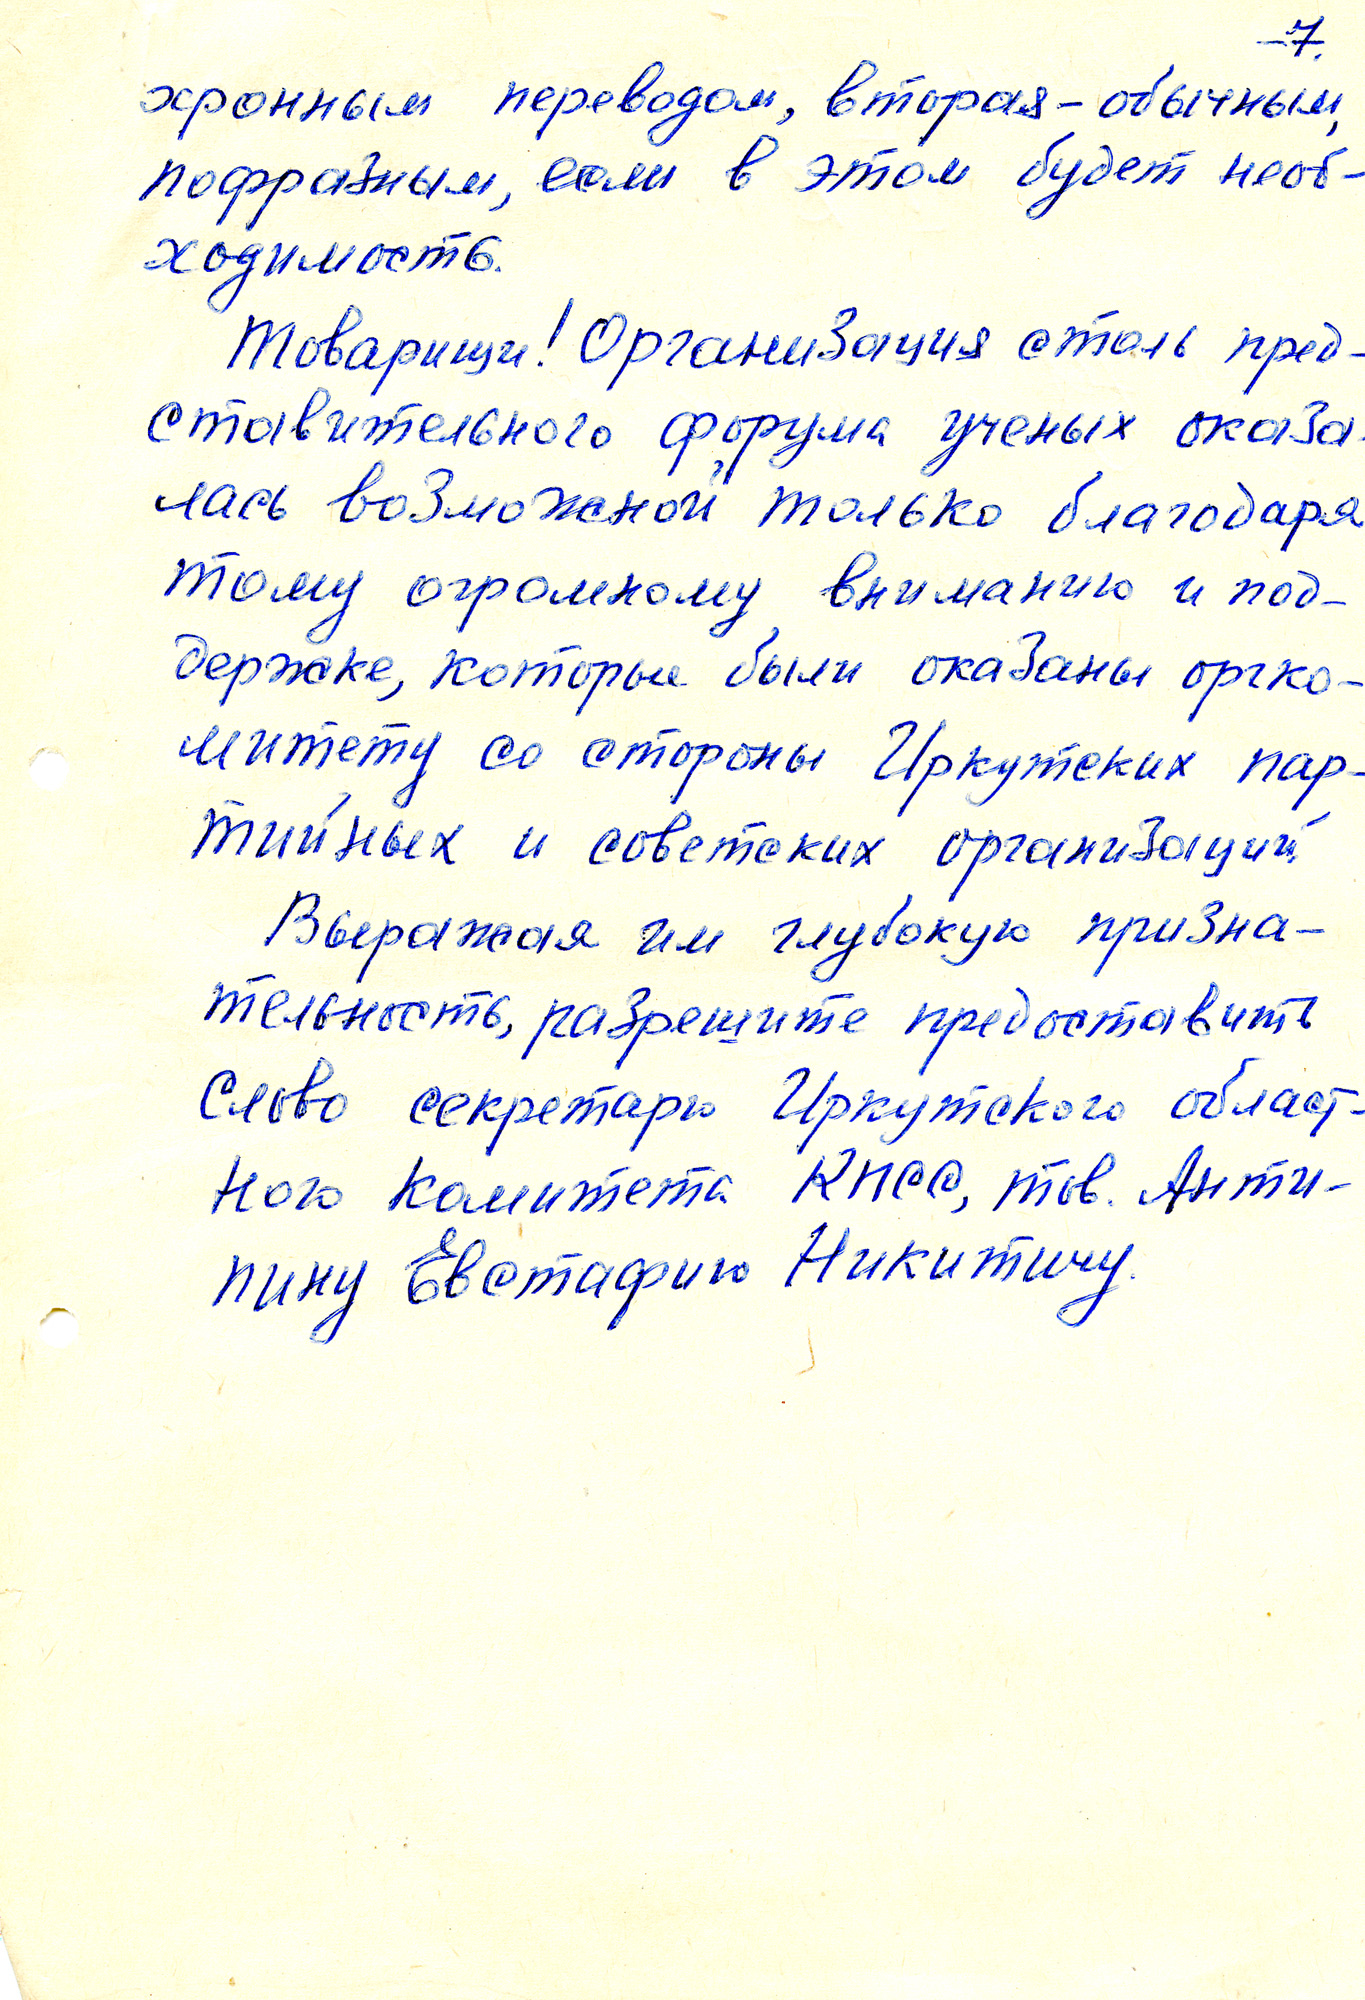 -7.
хронным переводом, вторая - обычным,
пофразным, если в этом будет необ-
ходимость.
Товарищи! Организация столь пред-
ставительного форума ученых оказа-
лась возможной только благодаря
тому огромному вниманию и под-
держке, которые были оказаны оргко-
митету со стороны Иркутских пар-
тийных и советских организаций.
Выражая им глубокую призна-
тельность, разрешите предоставить
слово секретарю Иркутского област-
ного комитета КПСС, тов. Анти-
пину Евстафию Никитичу.